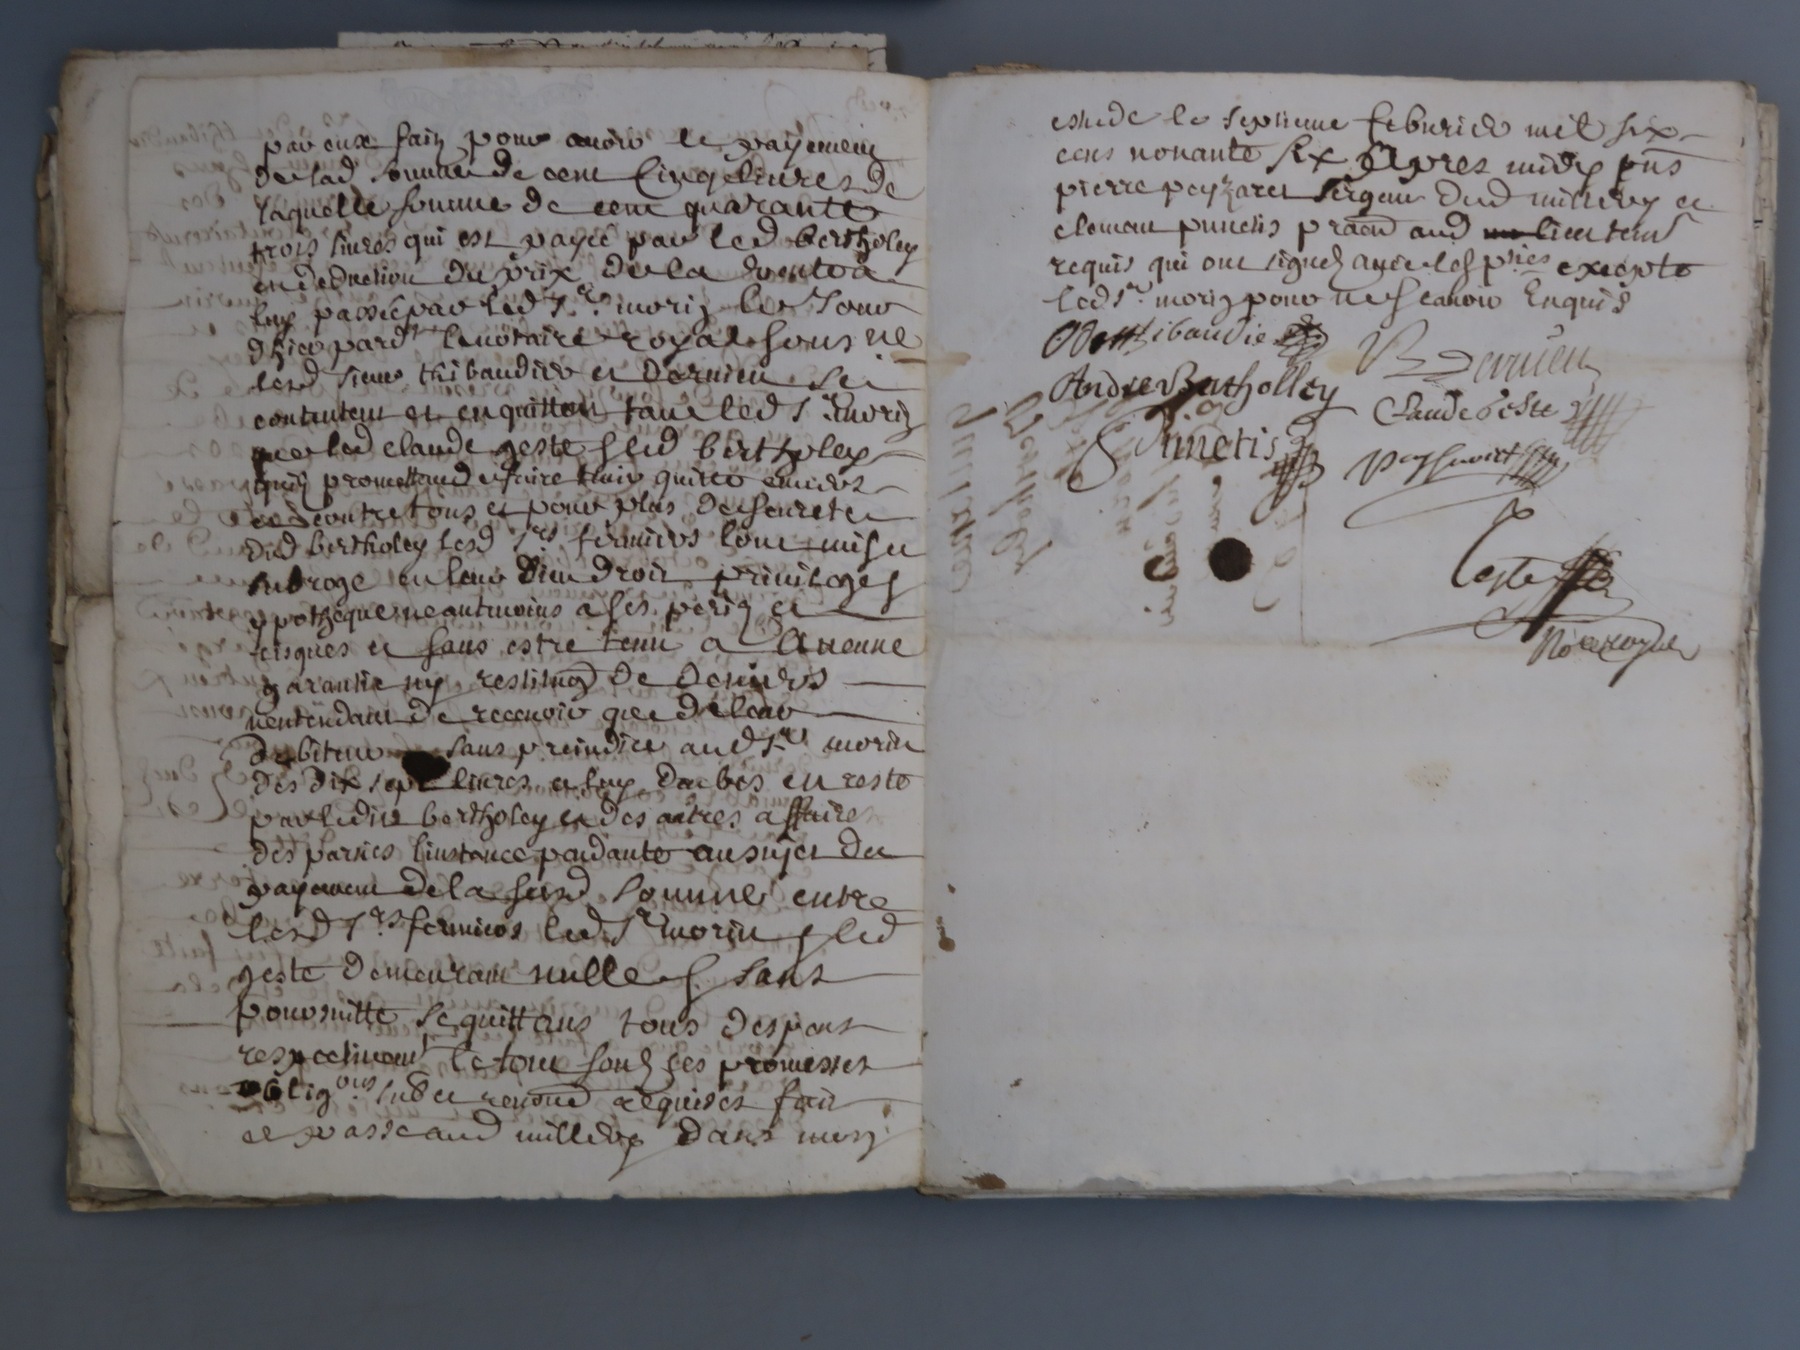 par eux faitz pour avoir le payement
de lad somme de cent cinq livres de
laquelle somme de cent quarante
trois livres qui est payee par led bertholey
en deduction du prix de la vente a
luy passee par led Sr morin ce jour
dhier pard le notaire royal soubs ne
lesd sieurs thibaudier et Dernieu se
contentent et en quittent tant led Sr morin
que led claude geste & led bertholey
promettand faire tenir quitte envers
et contre tous et pour plus de seurete
dud bertholey lesd Srs fermiers lont mis &
subroge en leur lieu droit privileges
ypotheque neantmoins a ses perilz et
risques et sans estre tenu a Aucune
garantie ny restituon de deniers
nentendant de recevoir que de leur
debiteur sans preiudice aud Sr morin
des dix sept livres a luy deubes en reste
par led bertholey et des autres affaires
des parties linstance pendante au sujet du
payement de la susd somme entre
lesd Srs fermiers led Sr morin & led
geste demeurant nulle & sans
poursuitte se quittans tous despens
respectivemt le tout soubz ses promesses
obligons submi renond requises fait
et passe aud millery dans mon
estude le septieme febvrier mil six
cens nonante six Apres midy pns
pierre peyzaret sergent dud millery et
clemant punctis praend aud lieu tems
requis qui ont signez avec les pties excepte
led Sr morin pour ne scavoir Enquis
Odet thibaudier Dernieu
Andre Bertholley Claude Geste
C Punctis
Geste
No re royal